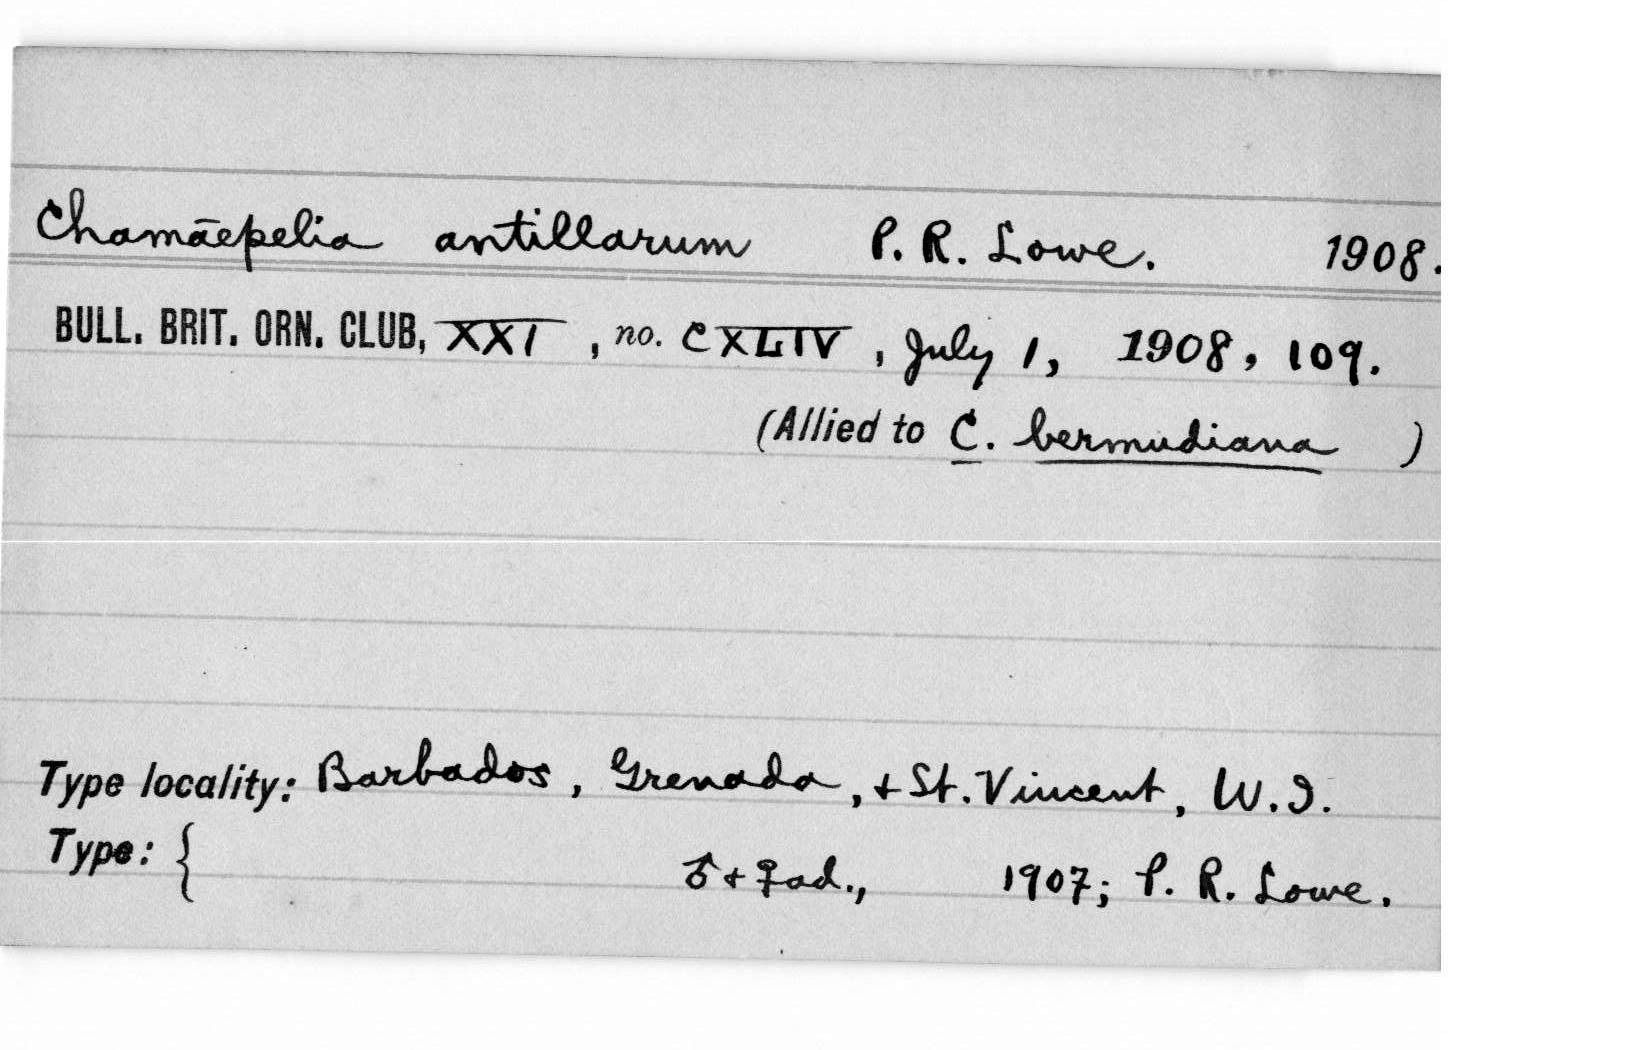 Chamāepelia antillarum P. R. Lowe. 1908.
BULL. BRIT. ORN. CLUB, XXI, no. CXLIV, July 1, 1908, 109.
(Allied to C. bermudiana )
Type locality: Barbados, Grenada, + St. Vincent, W.I.
Type: { ♂ + ♀ ad., 1907; P. R. Lowe.